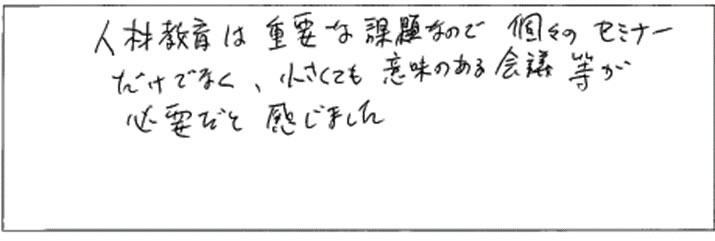 人材教育は重要な課題なので個々のセミナー
だけでなく、小さくても意味のある会議等が
必要だと感じました